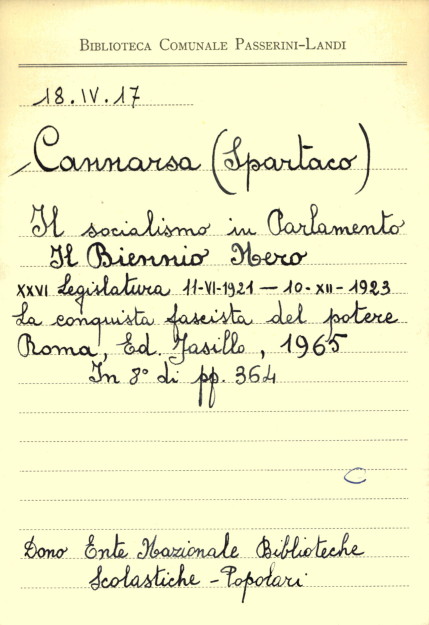 BIBLIOTECA COMUNALE PASSERINI-LANDI
18.IV.17
Cannarsa (Spartaco)
Il socialismo in Parlamento
Il Biennio Nero
XXVI Legislatura 11-VI-1921 — 10-XII-1923
La conquista fascista del potere
Roma, Ed. Jasillo, 1965
In 8° di pp. 364
C
Dono Ente Nazionale Biblioteche
Scolastiche - Popolari